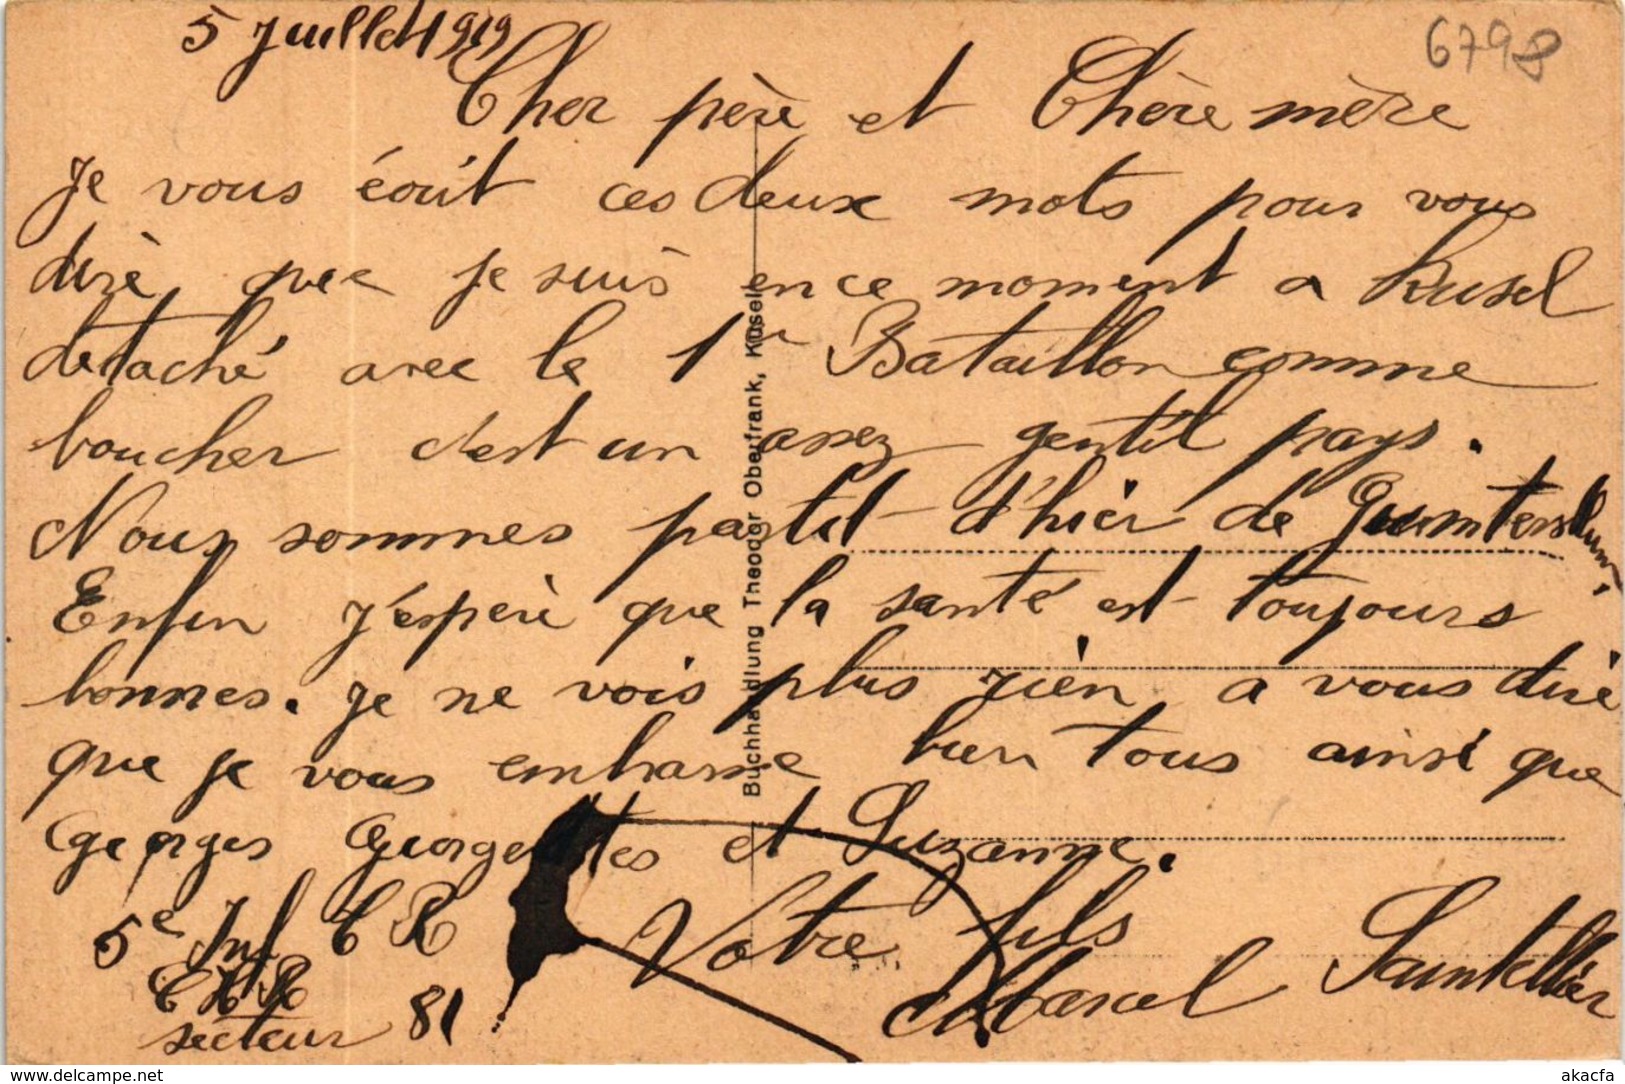 5 Juillet 1919
6798
Cher père et Chère mère
Je vous écrit ces deux mots pour vous
dire que je suis en ce moment a Kusel
detaché avec le 1er Bataillon comme
boucher c'est un assez gentil pays.
Nous sommes partit d'hier de
Enfin j'espère que la santé est toujours
bonnes. je ne vois plus rien a vous dire
que je vous embrasse bien tous ainsi que
Georges Georgettes et Suzanne.
Votre fils
Marcel Saintellier
5e Inf C R
C H R
secteur 81
Buchhandlung Theodor Oberfrank, Kusel
www.delcampe.net
akacfa